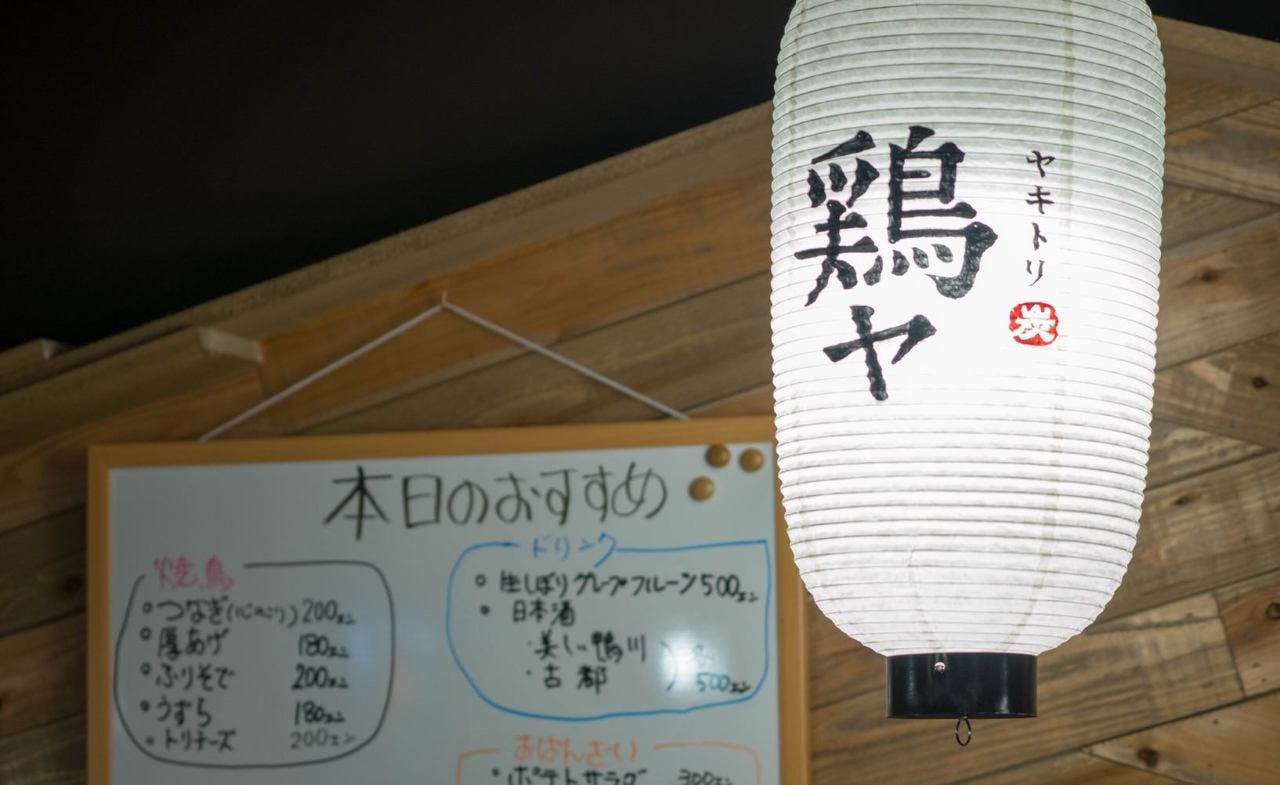 鶏ヤ
ヤキトリ
炭
本日のおすすめ
焼鳥
つなぎ(心のこり) 200エン
厚あげ 180エン
ふりそで 200エン
うずら 180エン
トリチーズ 200エン
ドリンク
生しぼりグレープフルーツ 500エン
日本酒
・美しい鴨川
・古都
500エン
おばんざい
ポテトサラダ 300エン